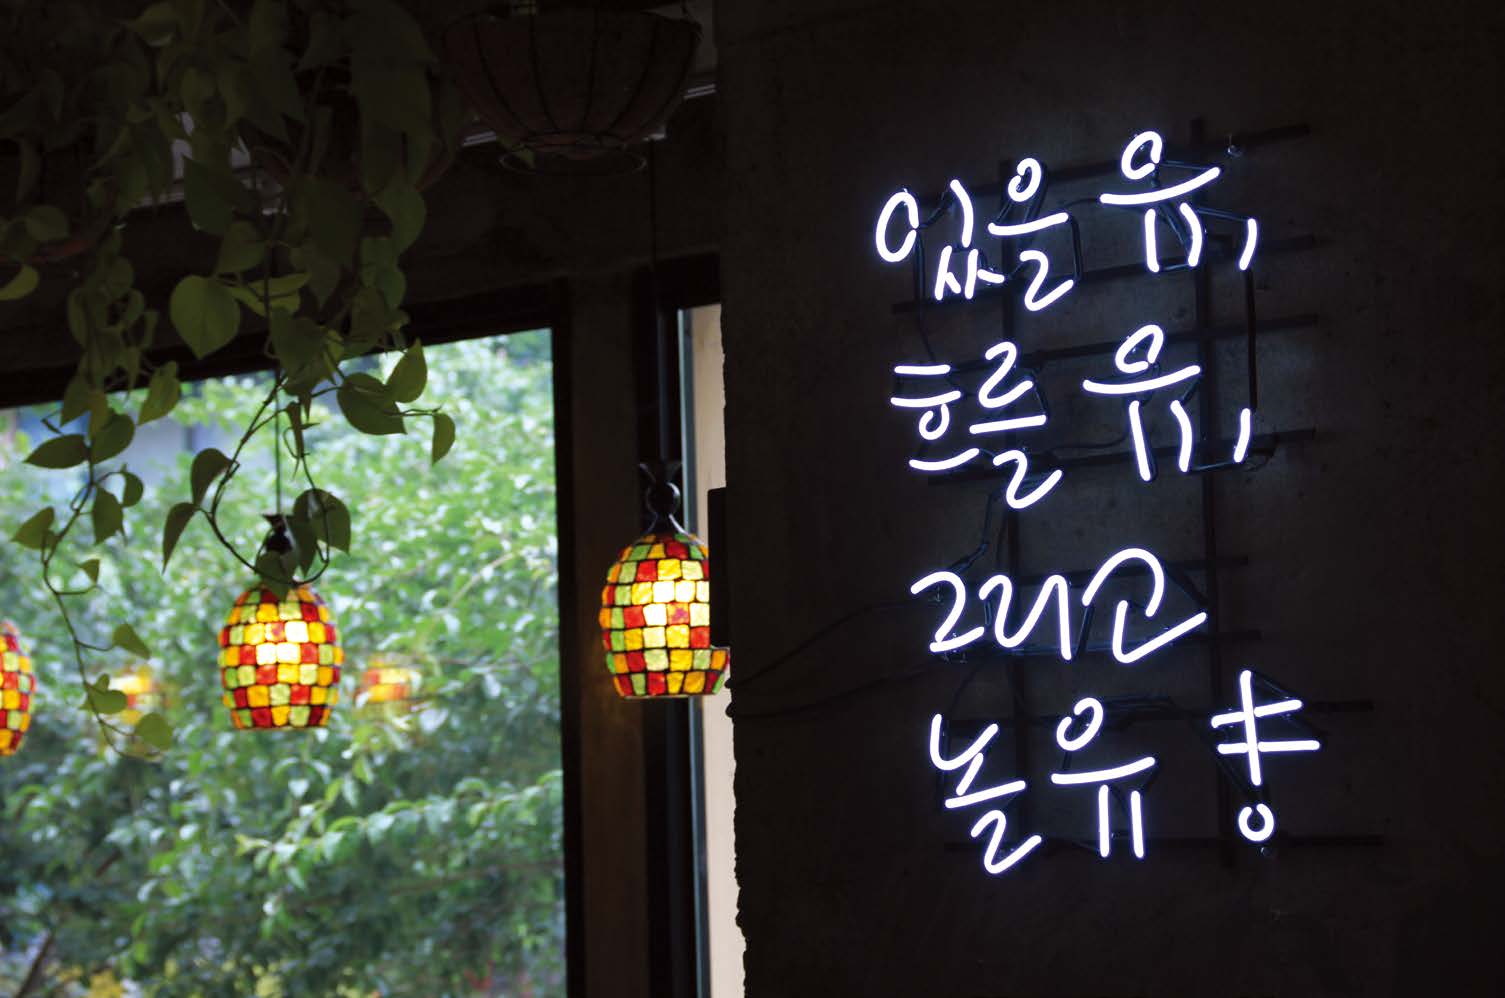 있을 유,
흐를 유,
그리고
놀 유!